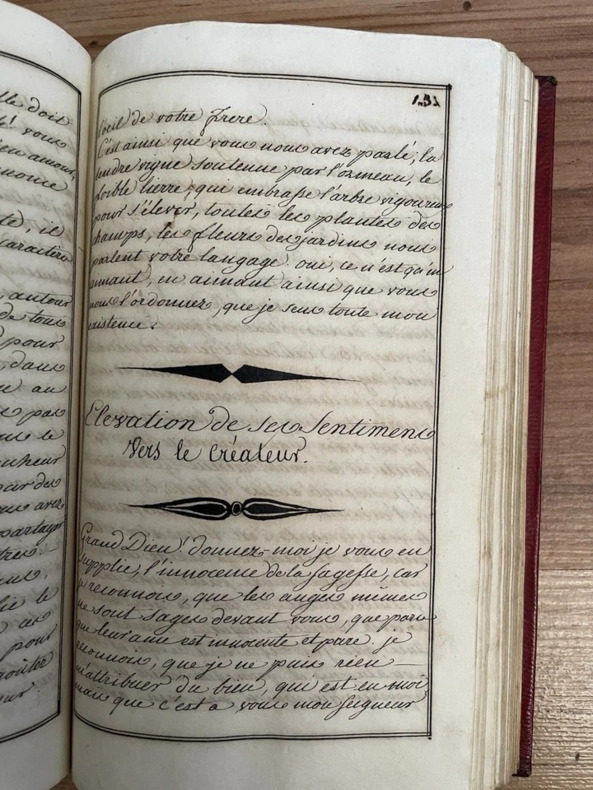 lle doit
vous
en amour
nonce
té, il
caractère
autour
de tous
pour
, dans
au
pas
le
nheur
our des
avez
partager
tres.
le
ces
pour
goûter
131
l'oeil de votre frere.
C'est ainsi que vous nous avez parlé; la
tendre vigne soutenue par l'ormeau, le
foible lierre, qui embrasse l'arbre vigoureux
pour s'élever, toutes les plantes des
champs, les fleurs des jardins nous
parlent votre langage. oui, ce n'est qu'en
aimant, en aimant ainsi que vous
nous l'ordonnez, que je sens toute mon
existence.
Elevation de ses Sentimens
Vers le Créateur.
Grand Dieu! donnez-moi je vous en
supplie, l'innocence de la sagesse, car
je reconnois, que les anges mêmes
ne sont sages devant vous, que parce
que leur ame est innocente et pure. je
reconnois, que je ne puis rien
m'attribuer du bien, qui est en moi
mais que c'est a vous mon Seigneur